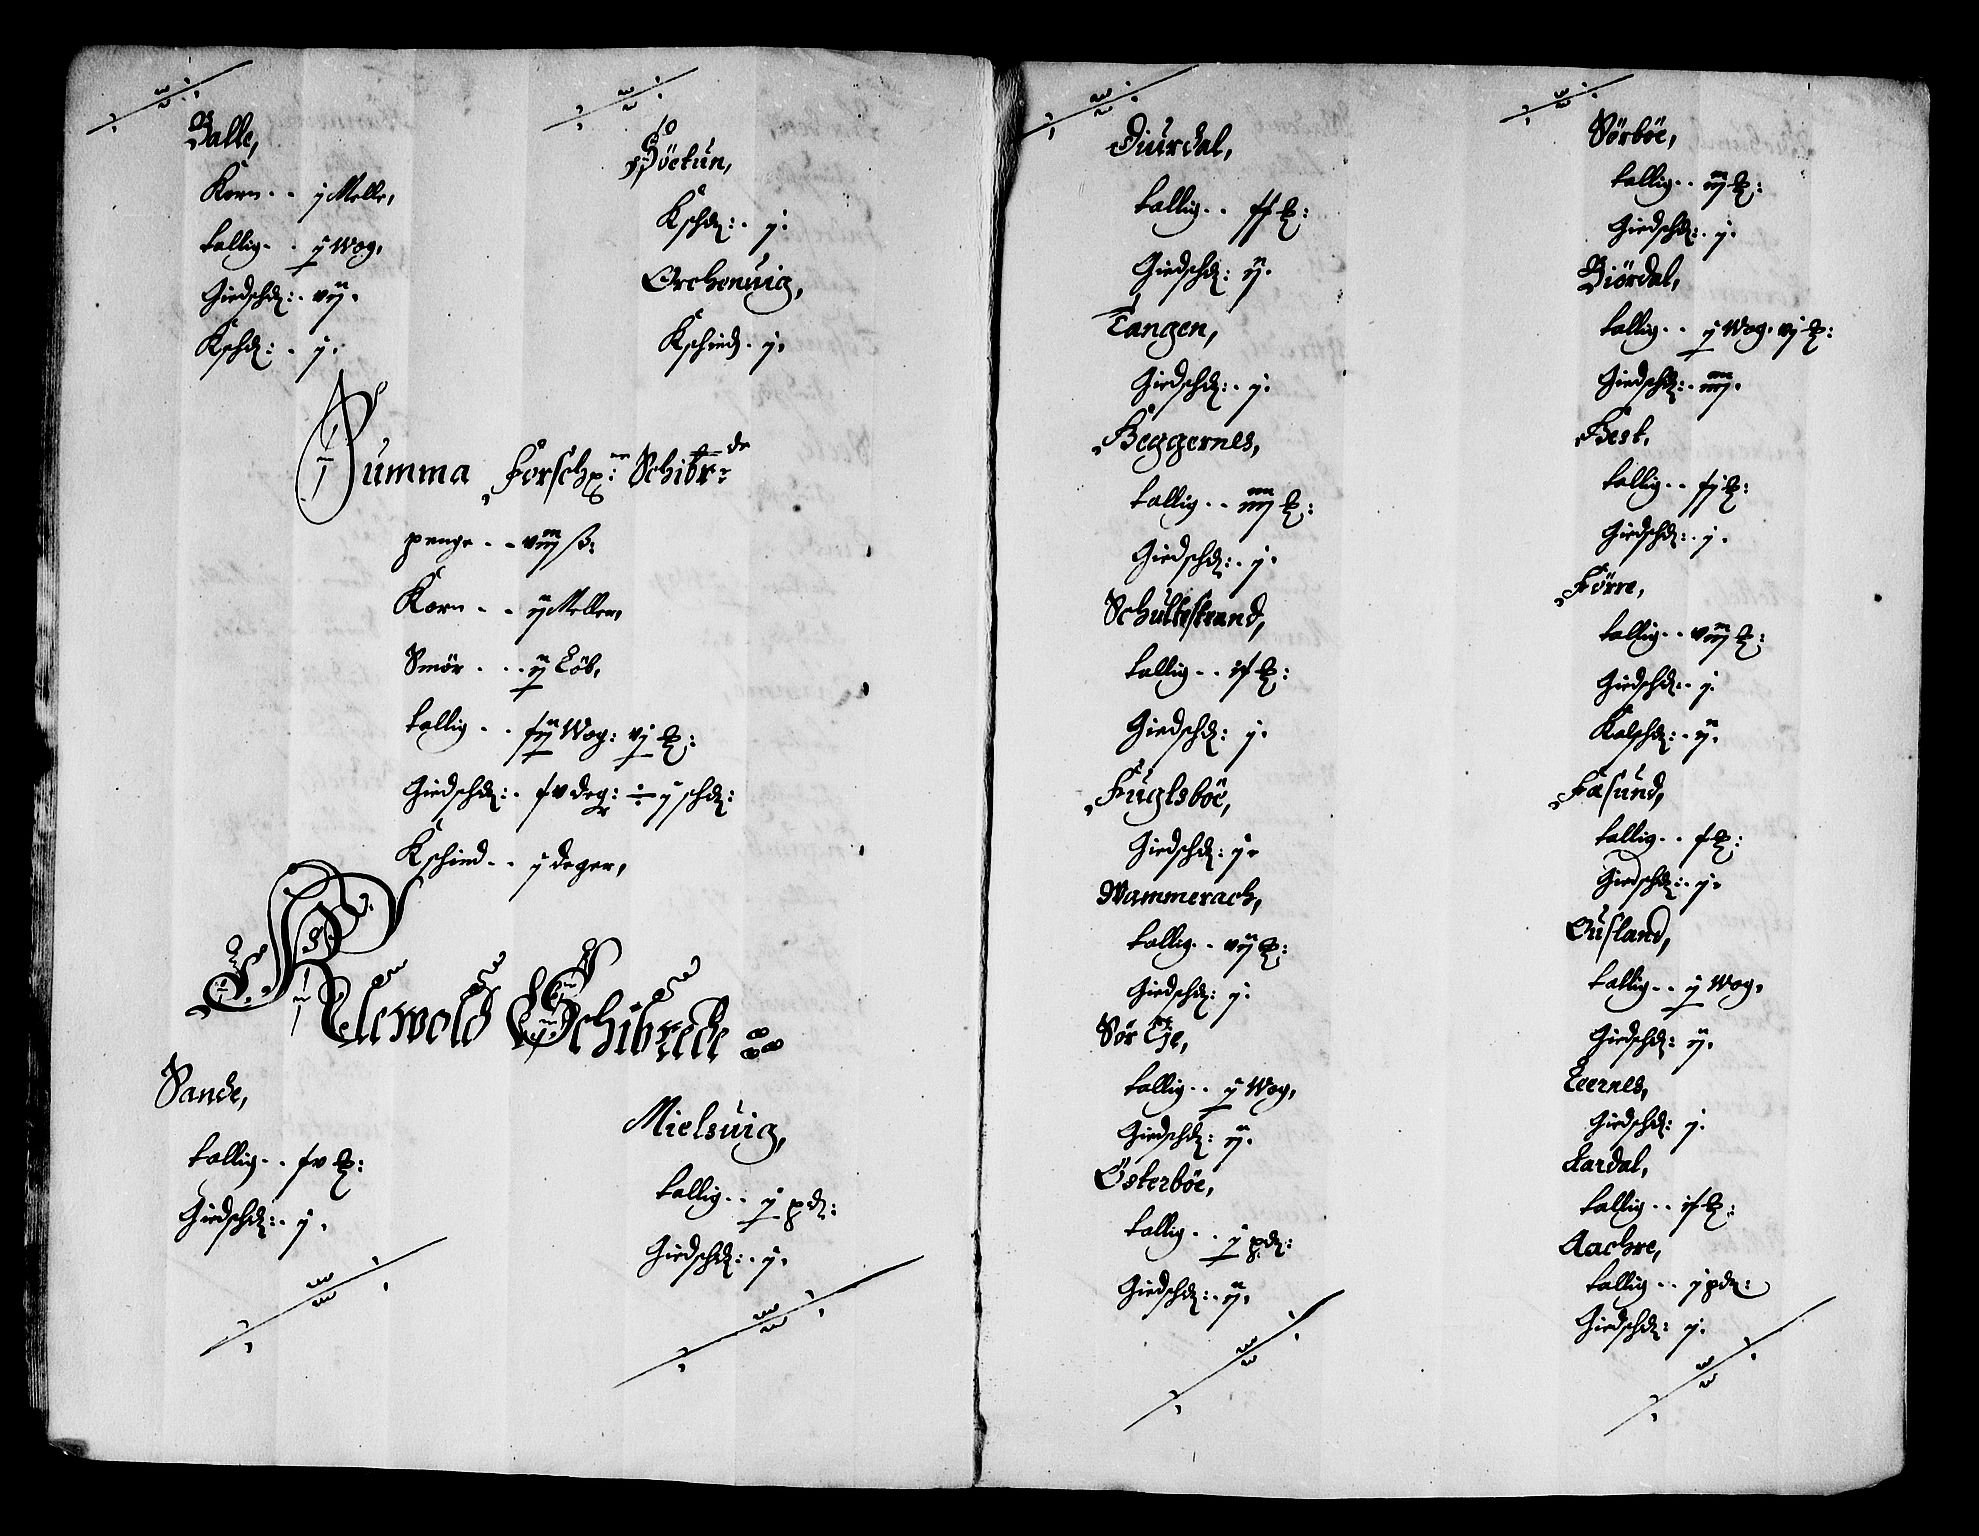 Balle,
Korn . . j Melle,
tallig . . j Wog,
Giedschd: . vij .
Kschd: . j .
Böetun,
Kschd: . j .
Orchenuig,
Kschind . j .
Summa Forschp: Schibr de
penge . . viij ß:
Korn . . ij Meller,
Smör . . . ij Löb,
tallig . . xij Wog: vj
Giedschd: . xv deg: ÷ j schd:
Kschind . . j deger,
Elewold Schibrede
Sande,
tallig . . xv
Giedschd: . j .
Mielsuig,
tallig . . j pd:
Giedschd: . j .
Diurdal,
tallig . .
Giedschd: ij .
Tangen,
Giedschd: . j .
Beggernes,
tallig . . iiij
Giedschd: . j .
Schultestrand,
tallig . . ix
Giedschd: j .
Fuglsböe,
Giedschd: j .
Wammerach,
tallig . . vij
Giedschd: j .
Sör Eje,
tallig . . j Wog,
Giedschd: ij .
Österböe,
tallig . . j pd:
Giedschd: . ij .
Sörböe,
tallig . . iij
Giedschd: . j .
Biördal,
tallig . . j Wog, vj
Giedschd: . iiij .
Best,
tallig . . xj
Giedschd: . j .
Förre,
tallig . . viij
Giedschd: . j .
Kalschd: . ij .
Fasund,
tallig . . x
Giedschd: . j .
Ousland,
tallig . . j Wog,
Giedschd: ij .
Leernes,
Giedschd: j .
Aardal,
tallig . . ix
Aachre,
tallig . . j pd:
Giedschd: j .